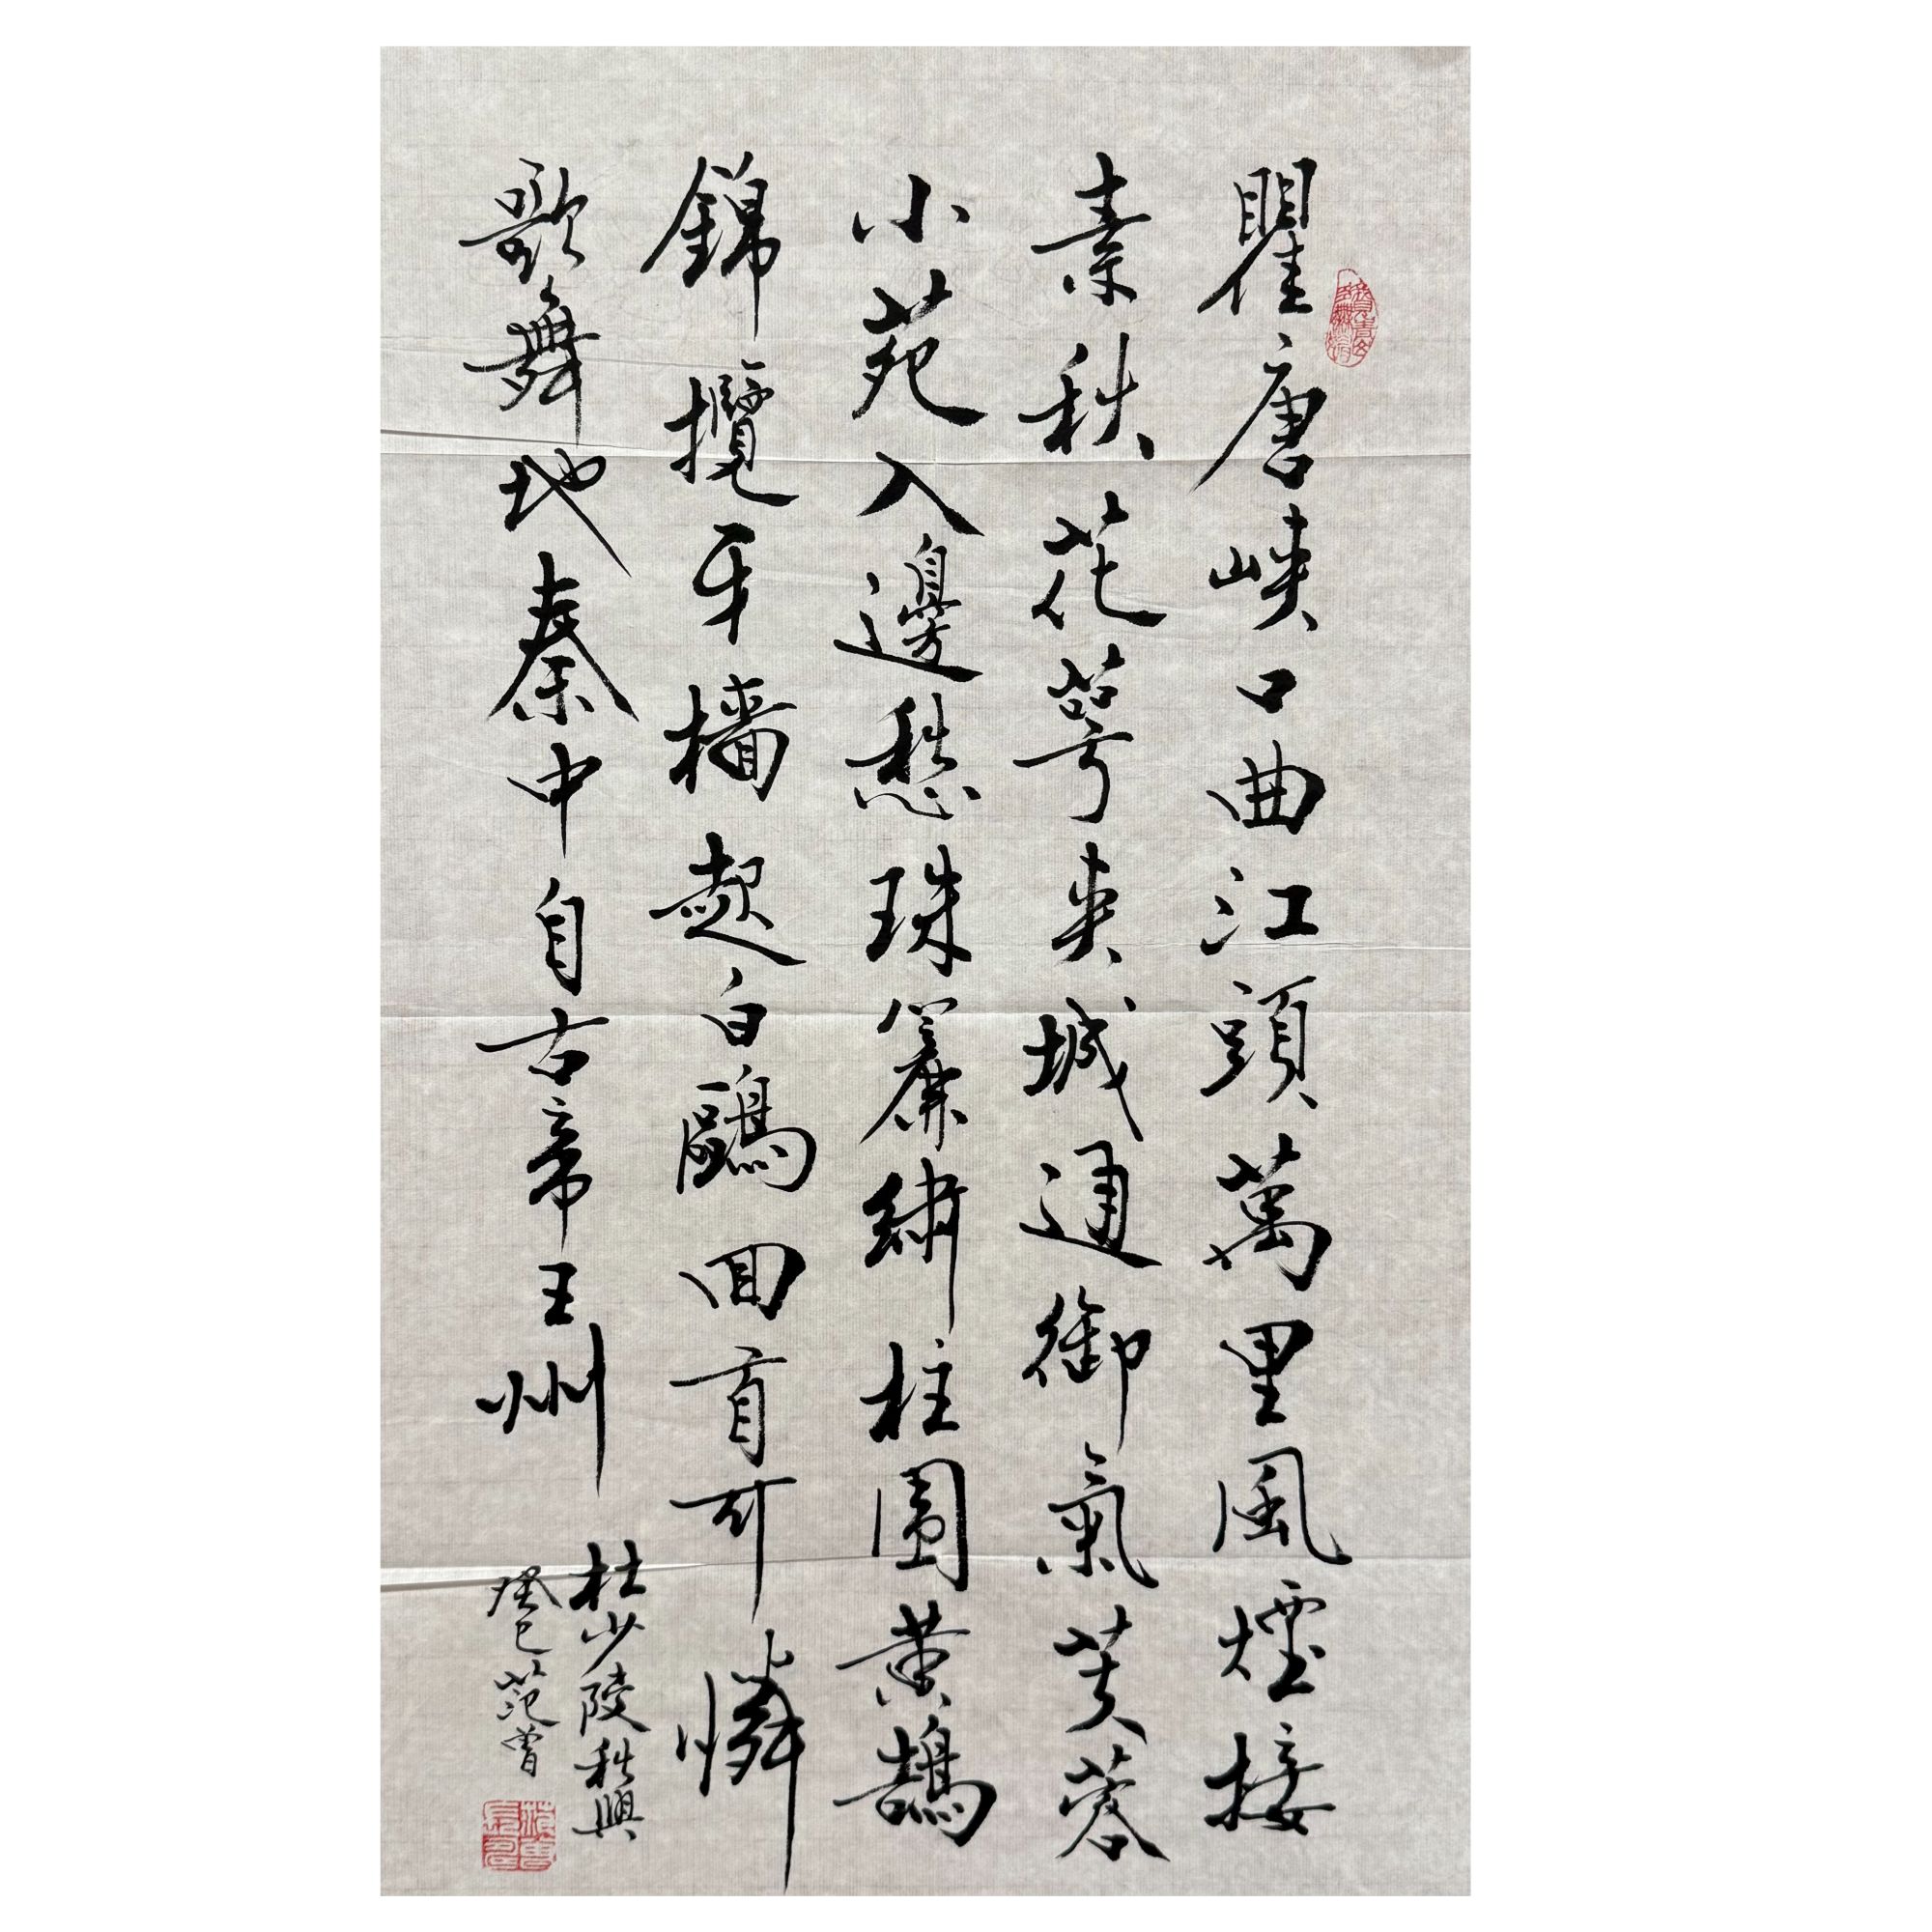 瞿唐峽口曲江頭萬里風煙接
素秋花萼夹城通御氣芙蓉
小苑入邊愁珠簾繡柱圍黄鵠
錦攬牙檣起白鷗回首可憐
歌舞地秦中自古帝王州
杜少陵秋興
癸巳范曾